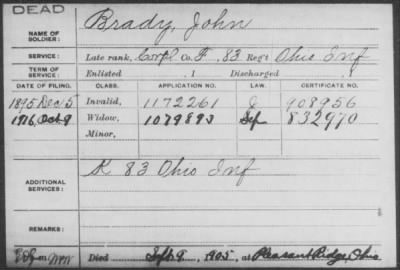 DEAD
NAME OF SOLDIER: Brady, John
SERVICE: Late rank, Corpl Co. F, 83 Reg't Ohio Inf
TERM OF SERVICE: Enlisted , 1 Discharged , 1
DATE OF FILING. CLASS. APPLICATION NO. LAW. CERTIFICATE NO.
1895 Dec 5 Invalid, 1172261 J 908956
1916, Oct 9 Widow, 1079893 Sep 832970
Minor,
ADDITIONAL SERVICES: K 83 Ohio Inf
REMARKS:
Died Sept 9, 1905, at Pleasant Ridge, Ohio